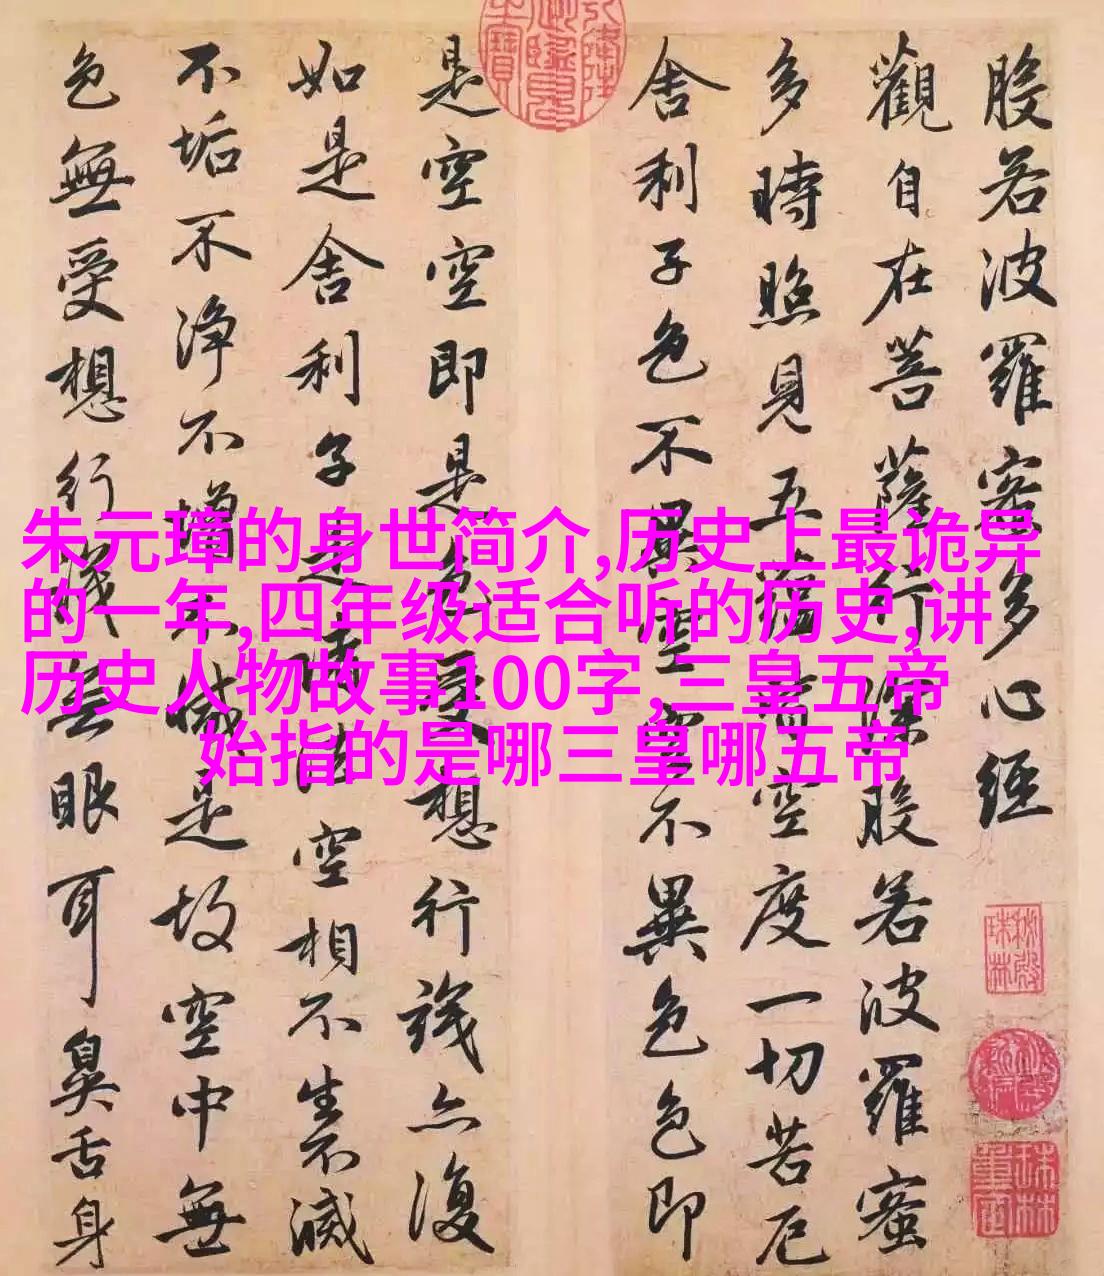 般若波羅蜜多心經
觀自在菩薩行深般若波羅蜜
多時照見五蘊皆空度一切苦厄
舍利子色不異空空不異色色即
是空空即是色受想行識亦復
如是舍利子是諸法空相不生不滅
不垢不淨不增不減是故空中無
色無受想行識無眼耳鼻舌身
朱元璋的身世简介,历史上最诡异
的一年,四年级适合听的历史,讲
历史人物故事100字,三皇五帝
始指的是哪三皇哪五帝
秘殿珠林